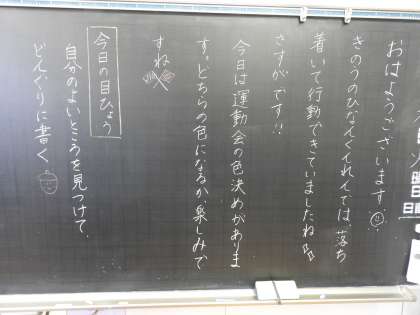 おはようございます。
きのうのひなんくんれんでは、落ち
着いて行動できていましたね
さすがです!!
今日は運動会の色決めがありま
す。どちらの色になるか、楽しみで
すね
今日の目ひょう
自分のよいところを見つけて、
どんぐりに書く。
曜日
日直